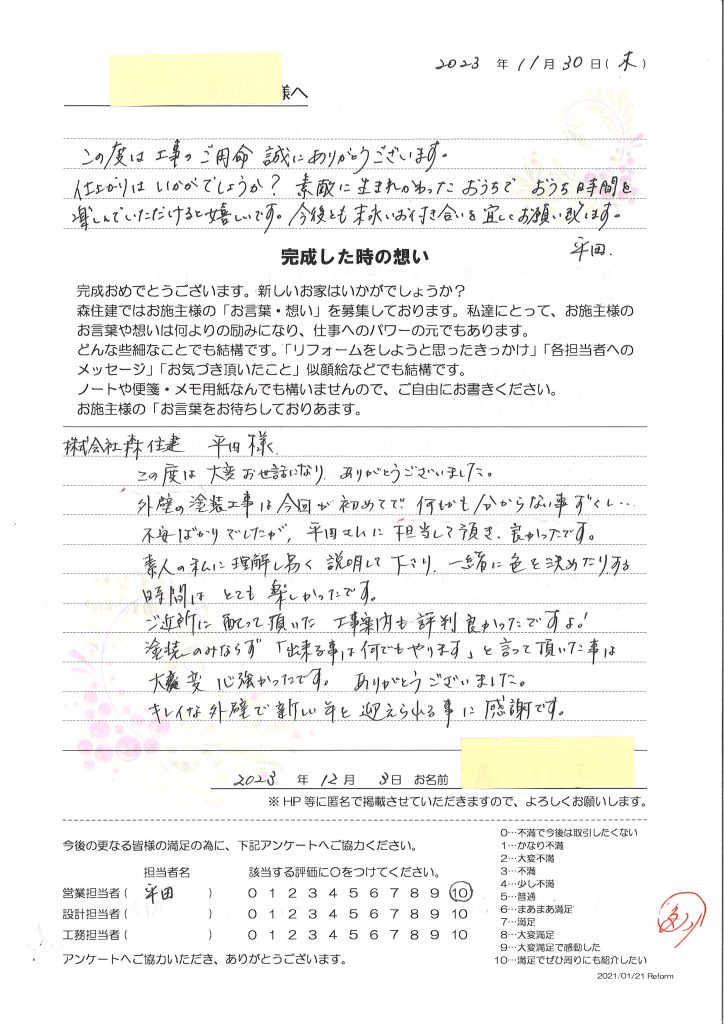 2023 年 11 月 30 日(木)
様へ
この度は工事のご用命 誠にありがとうございます。
仕上がりはいかがでしょうか? 素敵に生まれかわったおうちで おうち時間を
楽しんでいただけると嬉しいです。今後とも末永いお付き合いを宜しくお願い致します。
平田.
完成した時の想い
完成おめでとうございます。新しいお家はいかがでしょうか?
森住建ではお施主様の「お言葉・想い」を募集しております。私達にとって、お施主様の
お言葉や想いは何よりの励みになり、仕事へのパワーの元でもあります。
どんな些細なことでも結構です。「リフォームをしようと思ったきっかけ」「各担当者への
メッセージ」「お気づき頂いたこと」似顔絵などでも結構です。
ノートや便箋・メモ用紙なんでも構いませんので、ご自由にお書きください。
お施主様の「お言葉をお待ちしておりあます。
株式会社森住建 平田様.
この度は大変お世話になり、ありがとうございました。
外壁の塗装工事は今回が初めてで 何もかも分からない事ずくし…
不安ばかりでしたが、平田さんに担当して頂き、良かったです。
素人の私に理解し易く 説明して下さり、一緒に色を決めたりする
時間は とても 楽しかったです。
ご近所に配って頂いた 工事案内も評判良かったですよ!
塗装のみならず「出来る事は何でもやります」と言って頂いた事は
大変心強かったです。 ありがとうございました。
キレイな外壁で新しい年を迎えられる事に感謝です。
2023 年 12 月 3 日 お名前
※HP 等に匿名で掲載させていただきますので、よろしくお願いします。
今後の更なる皆様の満足の為に、下記アンケートへご協力ください。
担当者名 該当する評価に○をつけてください。
営業担当者( 平田 ) 0 1 2 3 4 5 6 7 8 9 10
設計担当者( ) 0 1 2 3 4 5 6 7 8 9 10
工務担当者( ) 0 1 2 3 4 5 6 7 8 9 10
アンケートへご協力いただき、ありがとうございます。
0…不満で今後は取引したくない
1…かなり不満
2…大変不満
3…不満
4…少し不満
5…普通
6…まあまあ満足
7…満足
8…大変満足
9…大変満足で感動した
10…満足でぜひ周りにも紹介したい
2021/01/21 Reform